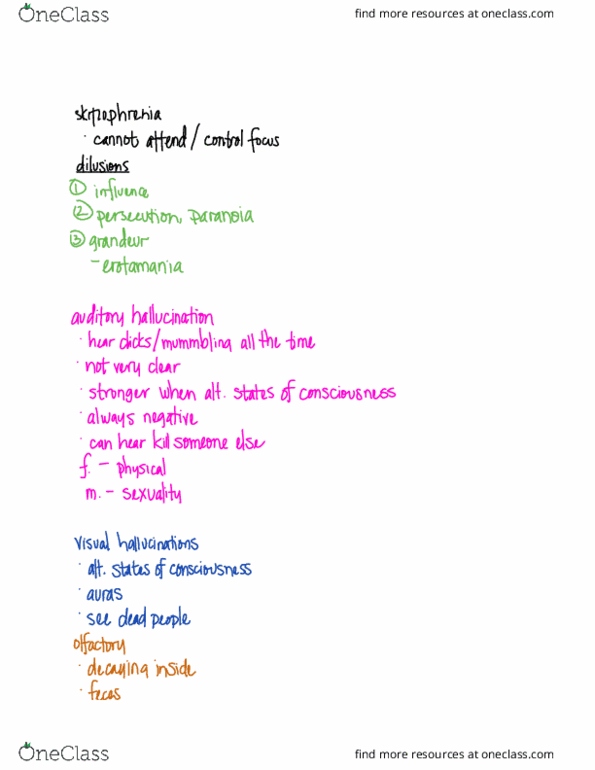 OneClass
find more resources at oneclass.com
skitzophrenia
· cannot attend / control focus
dilusions
① influence
② persecution, paranoia
③ grandeur
- erotamania
auditory hallucination
· hear clicks/mummbling all the time
· not very clear
· stronger when alt. states of consciousness
· always negative
· can hear kill someone else
f. - physical
m. - sexuality
visual hallucinations
· alt. states of consciousness
· auras
· see dead people
olfactory
· decaying inside
· feces
OneClass
find more resources at oneclass.com